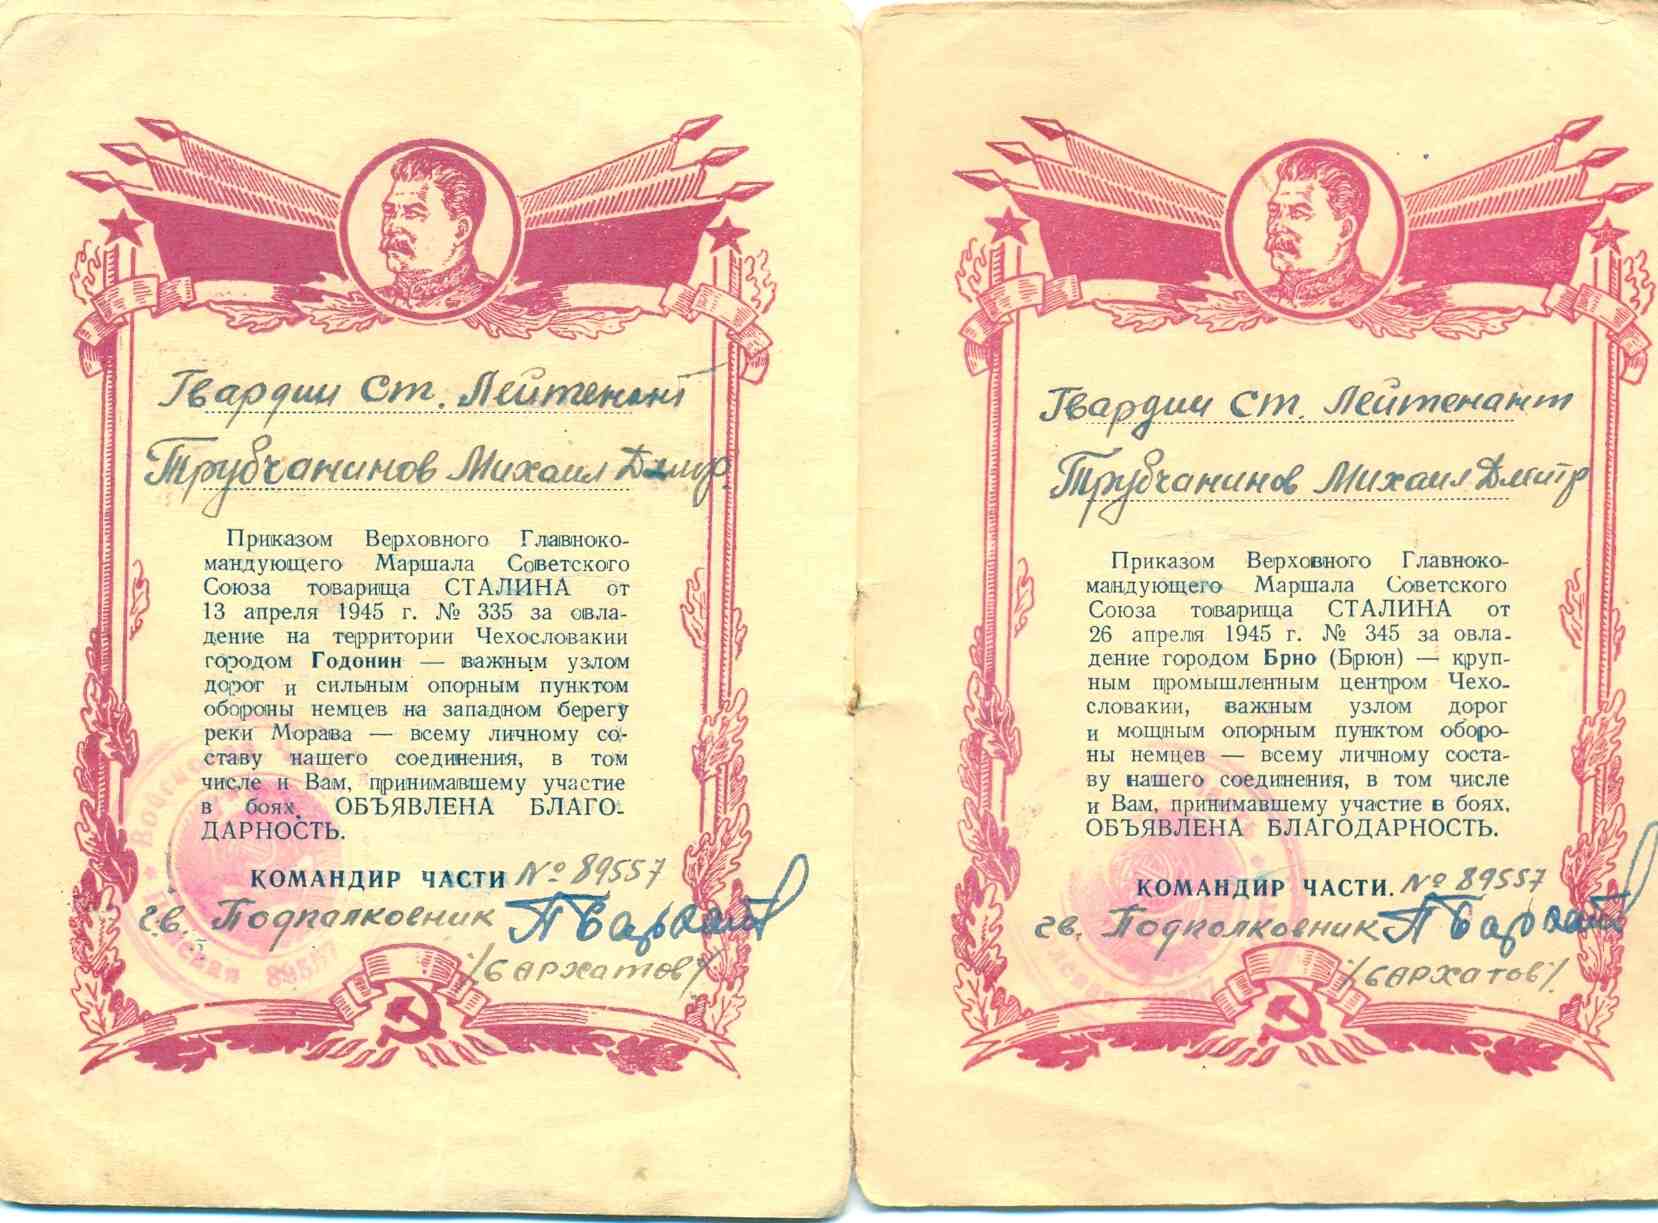 Гвардии Ст. Лейтенант
Трубчанинов Михаил Дмитр.
Приказом Верховного Главноко-
мандующего Маршала Советского
Союза товарища СТАЛИНА от
13 апреля 1945 г. № 335 за овла-
дение на территории Чехословакии
городом Годонин — важным узлом
дорог и сильным опорным пунктом
обороны немцев на западном берегу
реки Морава — всему личному со-
ставу нашего соединения, в том
числе и Вам, принимавшему участие
в боях, ОБЪЯВЛЕНА БЛАГО-
ДАРНОСТЬ.
КОМАНДИР ЧАСТИ № 89557
гв. Подполковник
/Бархатов/
89557
Гвардии Ст. Лейтенант
Трубчанинов Михаил Дмитр
Приказом Верховного Главноко-
мандующего Маршала Советского
Союза товарища СТАЛИНА от
26 апреля 1945 г. № 345 за овла-
дение городом Брно (Брюн) — круп-
ным промышленным центром Чехо-
словакии, важным узлом дорог
и мощным опорным пунктом оборо-
ны немцев — всему личному соста-
ву нашего соединения, в том числе
и Вам, принимавшему участие в боях,
ОБЪЯВЛЕНА БЛАГОДАРНОСТЬ.
КОМАНДИР ЧАСТИ. № 89557
гв. Подполковник
/Бархатов/.